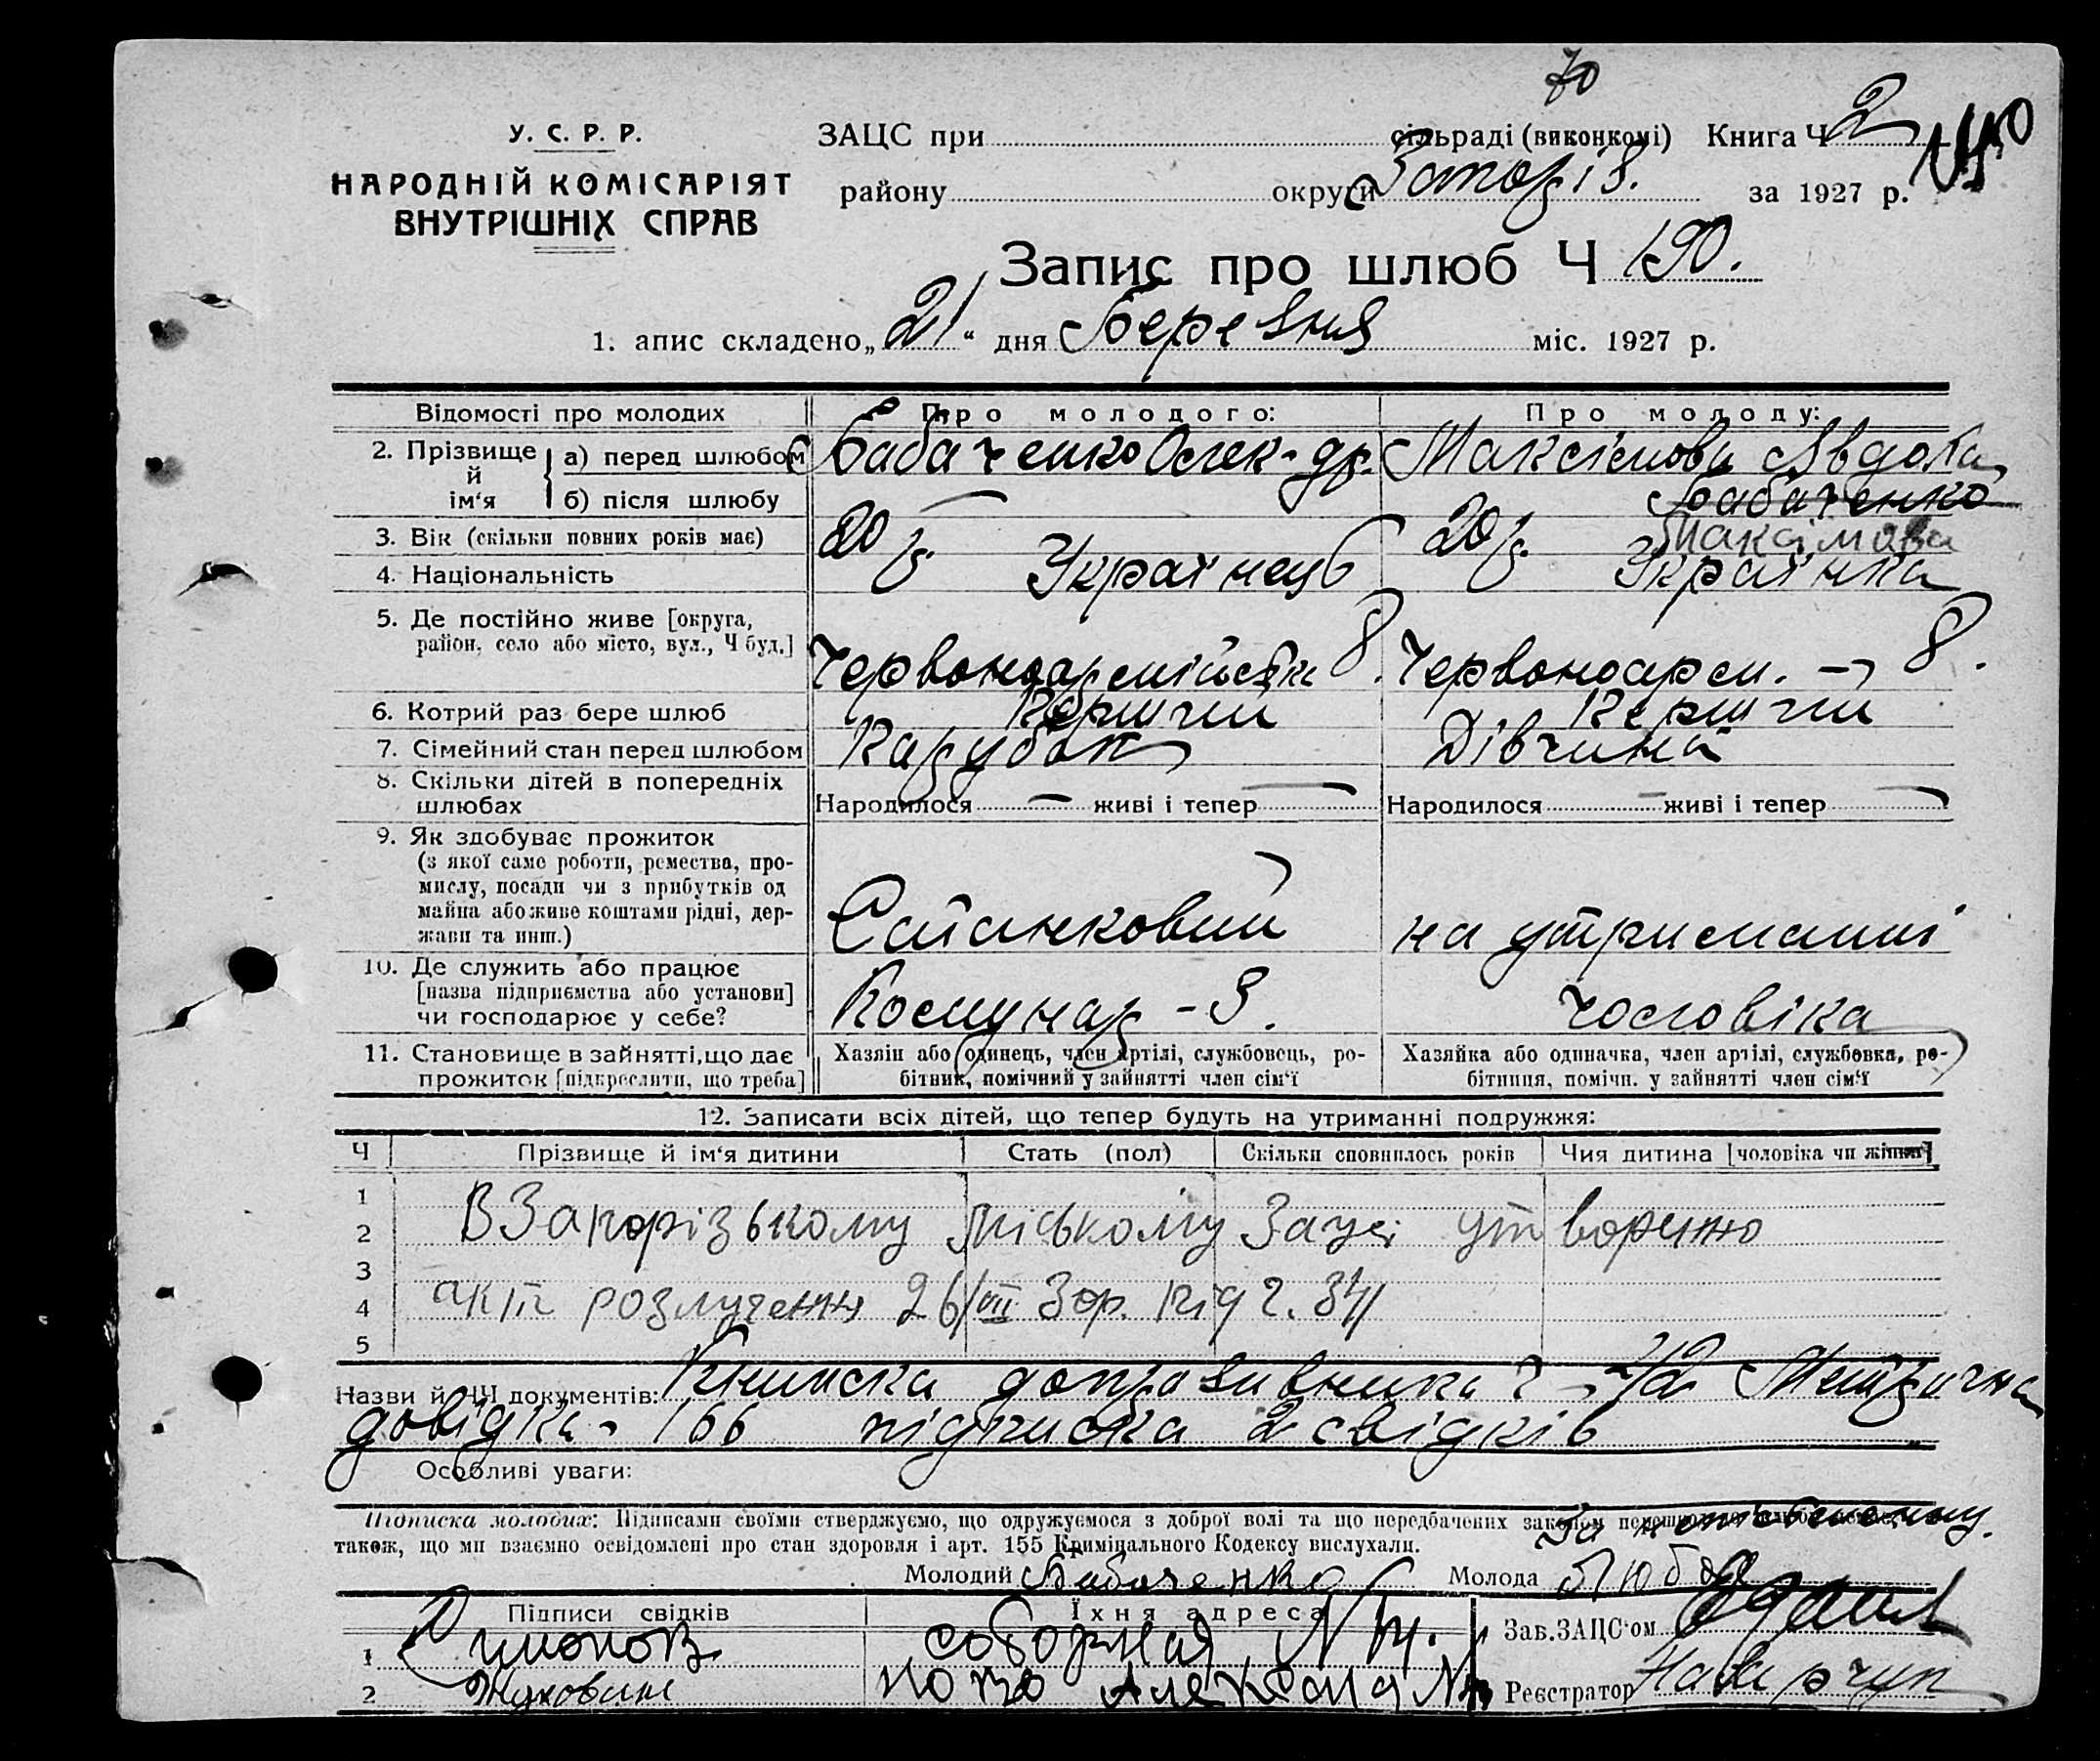 70
У. С. Р. Р.
НАРОДНІЙ КОМІСАРІЯТ
ВНУТРІШНІХ СПРАВ
ЗАЦС при сільраді (виконкомі) Книга Ч 2
району округи Запоріз. за 1927 р.
Запис про шлюб Ч 190.
1. апис складено „21“ дня Березня міс. 1927 р.
Відомості про молодих Про молодого: Про молоду:
2. Прізвище й ім‘я а) перед шлюбом Бабаченко Олек-др. Максімова Явдоха
б) після шлюбу Бабаченко
Максімова
3. Вік (скільки повних років має) 20 р. 20 р.
4. Національність Українець Українка
5. Де постійно живе [округа,
район, село або місто, вул., Ч буд.] Червоноармійська 8. Червоноарм. 8.
6. Котрий раз бере шлюб Перший Перший
7. Сімейний стан перед шлюбом Парубок Дівчина
8. Скільки дітей в попередніх
шлюбах Народилося — живі і тепер — Народилося — живі і тепер —
9. Як здобуває прожиток
(з якої само роботи, ремества, про-
мислу, посади чи з прибутків од
майна або живе коштами рідні, дер-
жави та инш.) на утриманні
10. Де служить або працює
[назва підприємства або установи]
чи господарює у себе? Комунар - чоловіка
11. Становище в зайнятті, що дає
прожиток [підкреслити, що треба]
Хазяїн або одинець, член артілі, службовець, ро-
бітник, помічний у зайнятті член сім‘ї
Хазяйка або одиначка, член артілі, службовка, ро-
бітниця, помічн. у зайнятті член сім‘ї
12. Записати всіх дітей, що тепер будуть на утриманні подружжя:
Ч Прізвище й ім‘я дитини Стать (пол) Скільки сповнилось років Чия дитина [чоловіка чи жінки]
1
2 В Запорізькому міському Зацсі утворено
3
4 акт розлучення 26/VII 3ор. під ч. 341
5
Назви й ЧЧ документів: Книжка Метрична
довідка 166 підписка 2 свідків
Особливі уваги:
Підписка молодих: Підписами своїми стверджуємо, що одружуємося з доброї волі та що передбачених законом перешкод до шлюбу немає,
також, що ми взаємно освідомлені про стан здоровля і арт. 155 Кримінального Кодексу вислухали.
За неписьменну.
Молодий Бабаченко Молода
Підписи свідків Їхня адреса Зав. ЗАЦС‘ом
1 Симонов соборная
2 Реєстратор